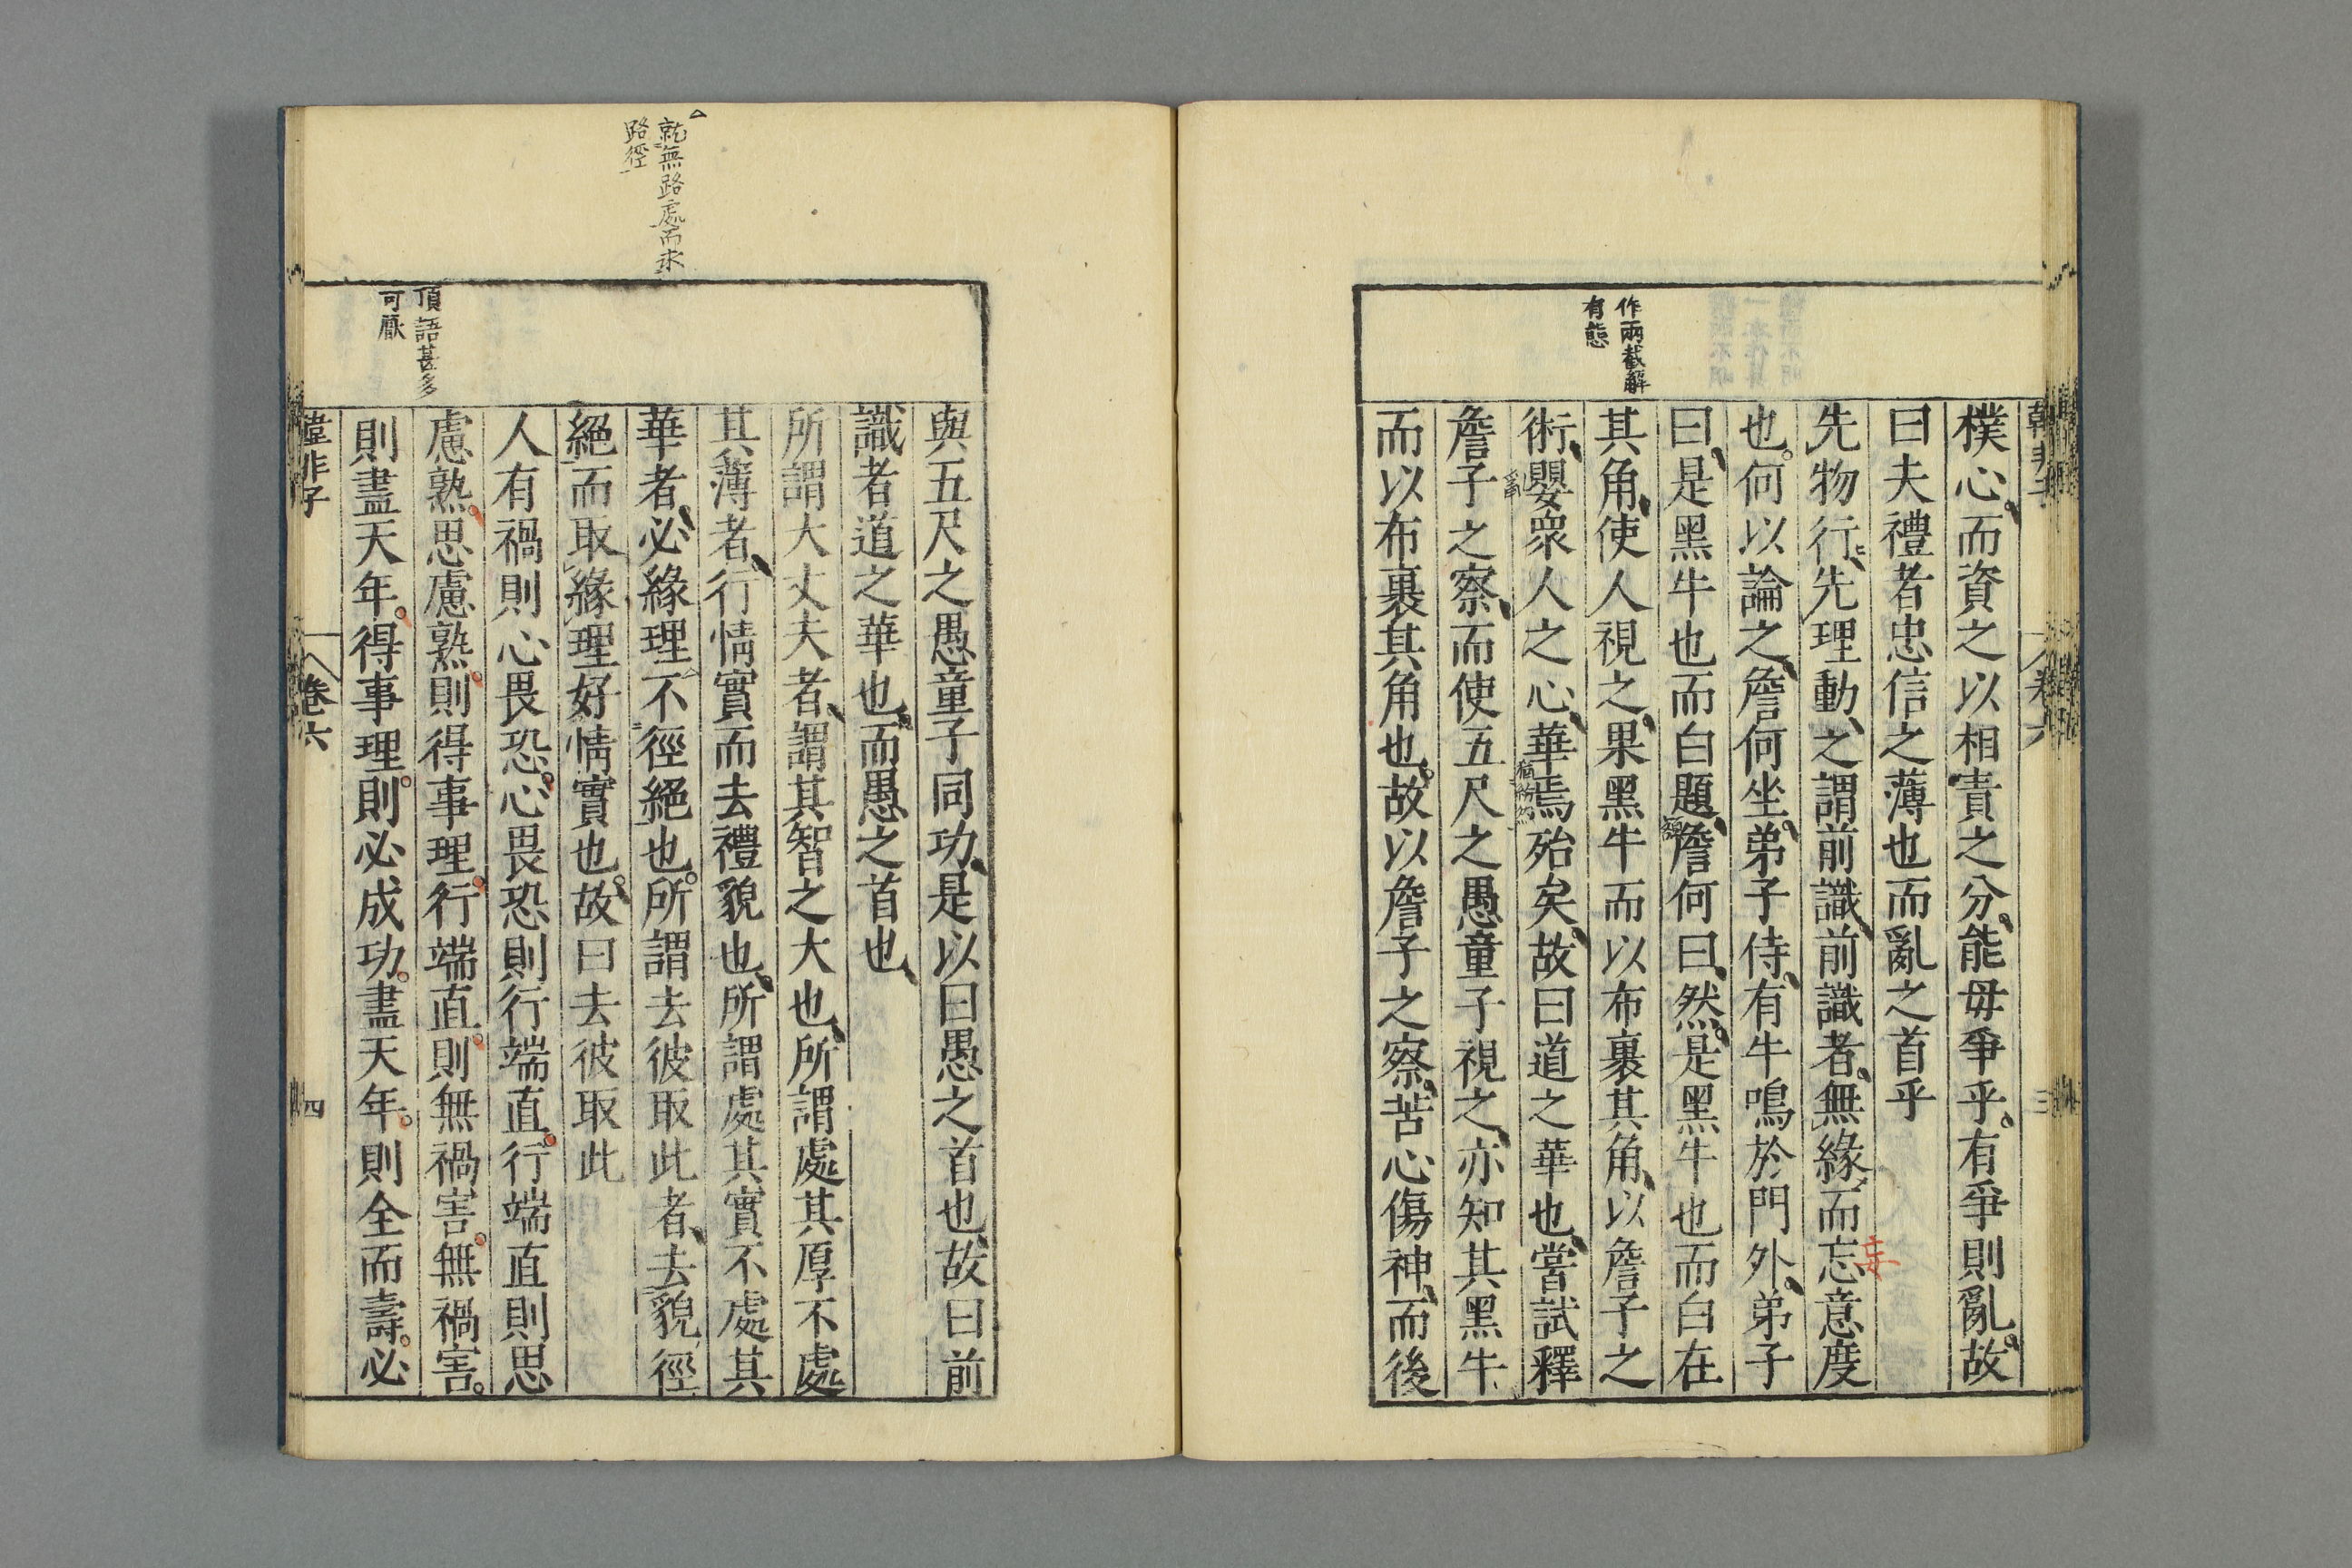 韓非子 卷六 三
樸心而資之以相責之分能毋爭乎有爭則亂故
曰夫禮者忠信之薄也而亂之首乎
先物行先理動之謂前識前識者無緣而忘意度
妄
也何以論之詹何坐弟子侍有牛鳴於門外弟子
曰是黑牛也而白題詹何曰然是黑牛也而白在
額
作兩截解
有態
其角使人視之果黑牛而以布裹其角以詹子之
術嬰衆人之心華焉殆矣故曰道之華也嘗試釋
詹子之察而使五尺之愚童子視之亦知其黑牛
而以布裹其角也故以詹子之察苦心傷神而後
與五尺之愚童子同功是以曰愚之首也故曰前
識者道之華也而愚之首也
所謂大丈夫者謂其智之大也所謂處其厚不處
其薄者行情實而去禮貌也所謂處其實不處其
就無路處而求
路徑
華者必緣理不徑絕也所謂去彼取此者去貌徑
絕而取緣理好情實也故曰去彼取此
人有禍則心畏恐心畏恐則行端直行端直則思
頂語甚多
可厭
慮熟思慮熟則得事理行端直則無禍害無禍害
則盡天年得事理則必成功盡天年則全而壽必
韓非子 卷六 四